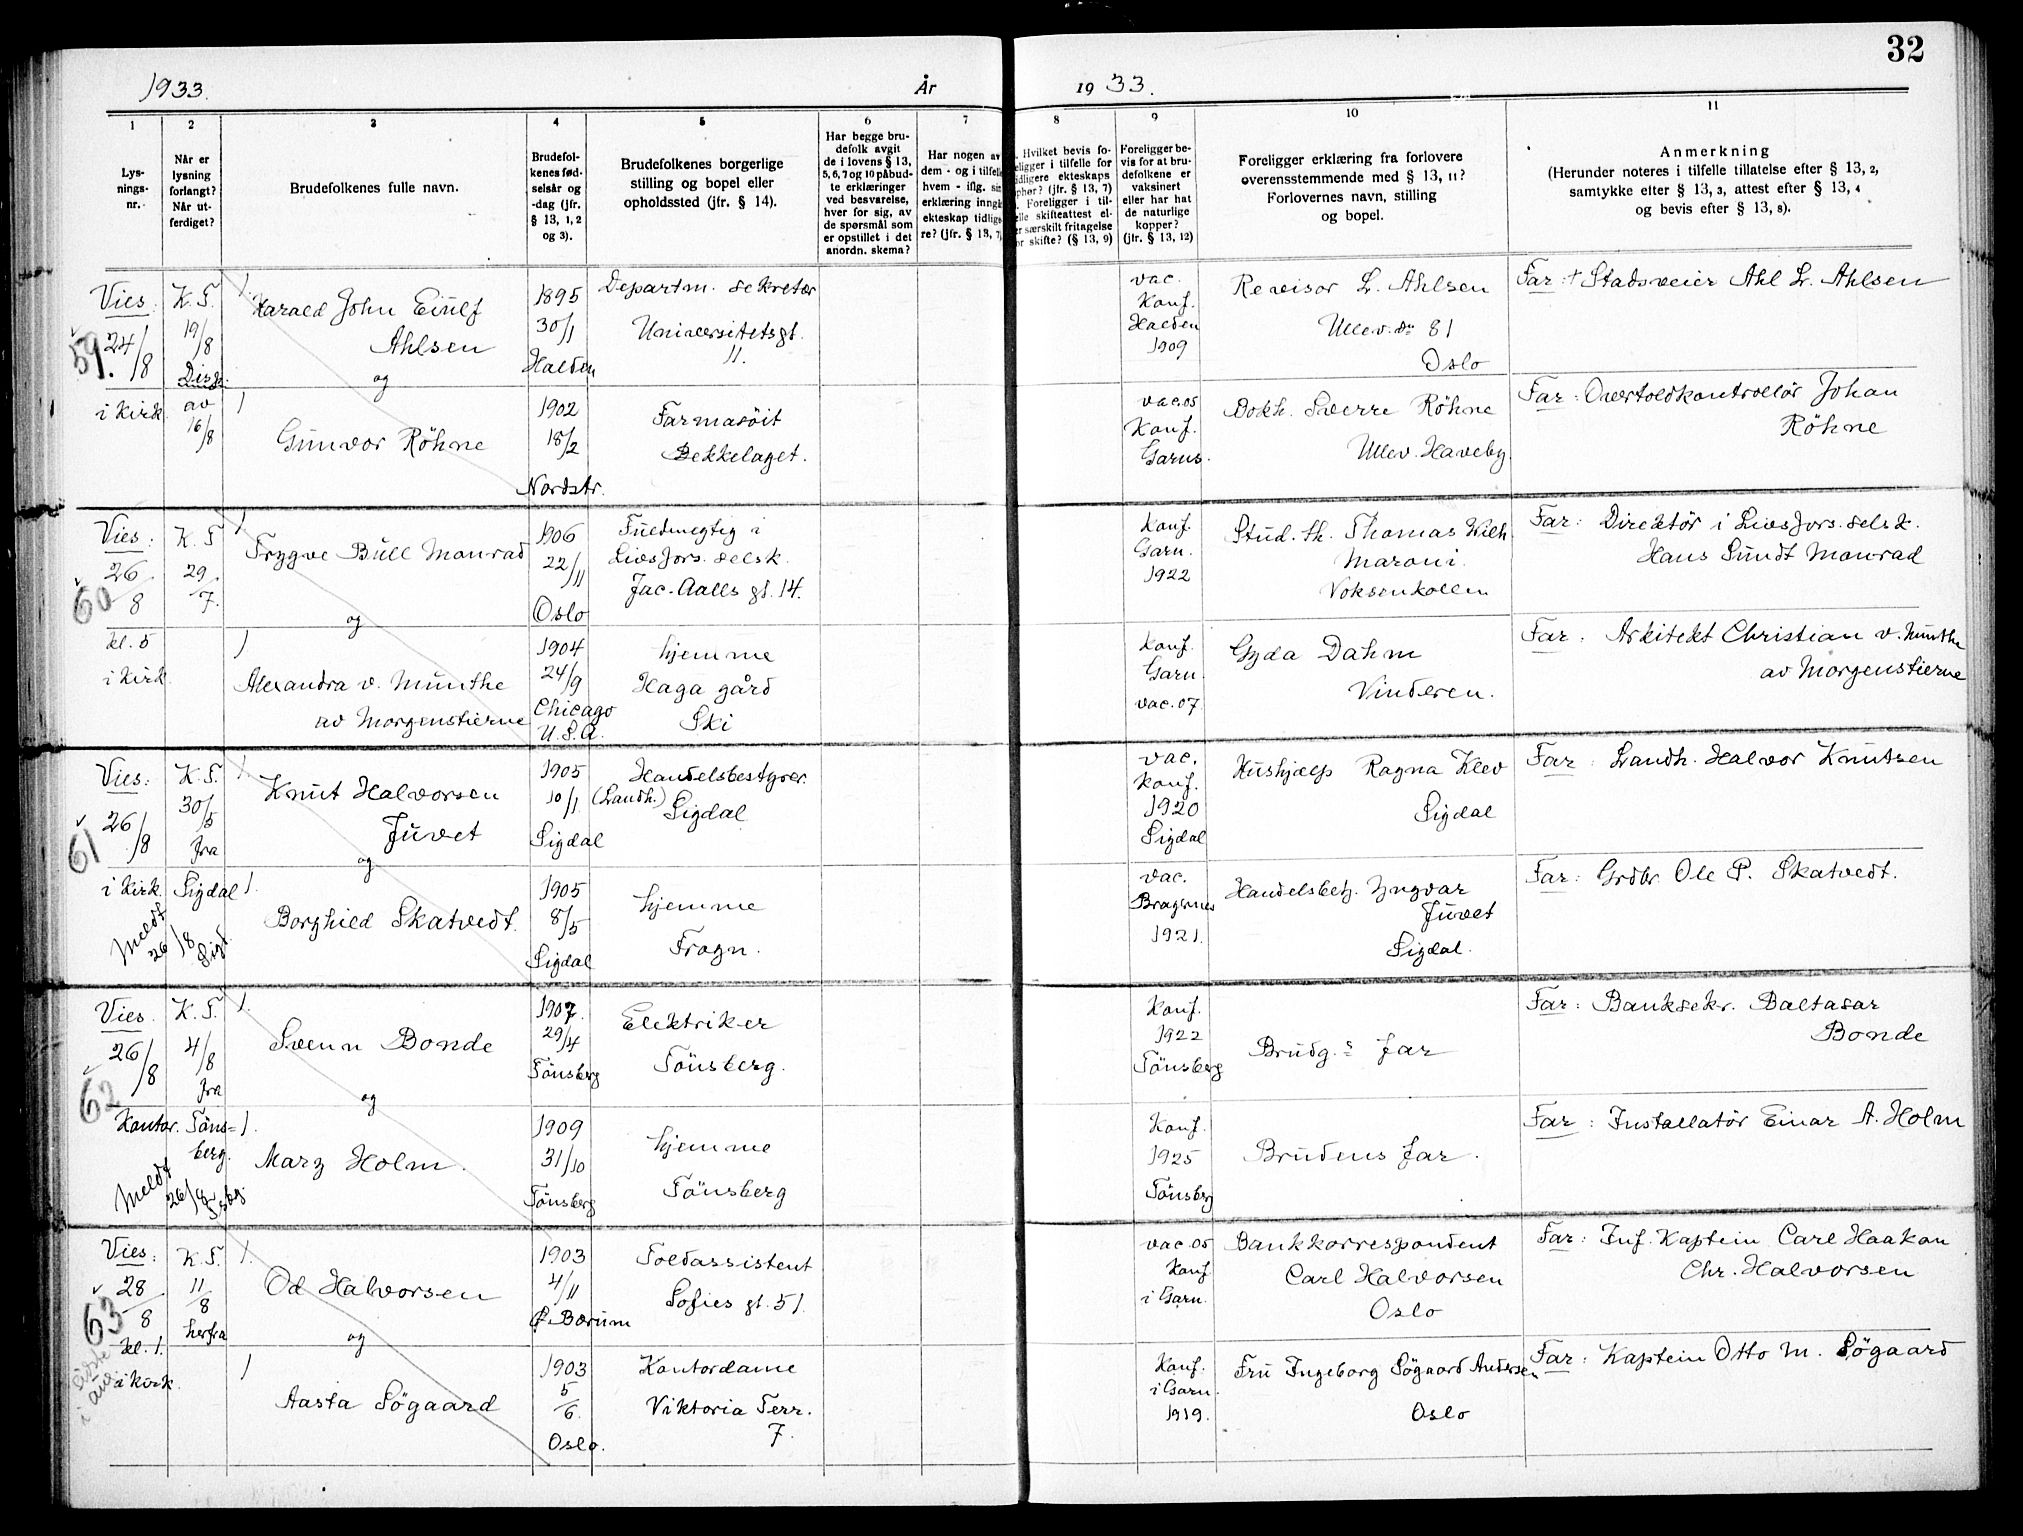 32
1933.
År
1933.
1
2
3
4
5
6
7
8
9
10
11
Lys-
nings-
nr.
Når er
lysning
forlangt?
Når ut-
ferdiget?
Brudefolkenes fulle navn.
Brudefol-
kenes fød-
selsår og
-dag (jfr.
§ 13, 1, 2
og 3).
Brudefolkenes borgerlige
stilling og bopel eller
opholdssted (jfr. § 14).
Har begge bru-
defolk avgit
de i lovens § 13,
5, 6, 7 og 10 påbud-
te erklæringer
ved besvarelse,
hver for sig, av
de spørsmål som
er opstillet i det
anordn. skema?
Har nogen av
dem - og i tilfelle
hvem - iflg. sin
erklæring inngå
ekteskap tidlige
re? (jfr. § 13, 7,
. Hvilket bevis fo-
eligger i tilfelle for
idligere ekteskaps
phør? (jfr. § 13, 7)
. Foreligger i til-
elle skifteattest el-
er særskilt fritagelse
or skifte? (§ 13, 9)
Foreligger be-
vis for at bru-
defolkene er
vaksinert
eller har hat
de naturlige
kopper?
(jfr. § 13, 12)
Foreligger erklæring fra forlovere
overensstemmende med § 13, 11?
Forlovernes navn, stilling
og bopel.
Anmerkning
(Herunder noteres i tilfelle tillatelse efter § 13, 2,
samtykke efter § 13, 3, attest efter § 13, 4
og bevis efter § 13, 8).
59.
Vies:
24/8
i kirk.
K. T.
19/8
Dirk.
av
16/8
1.
Harald John Eiulf
Ahlsen
og
1
Gunvor Röhne
1895
30/1
Halden
Departm. sekretær
Universitetsgt.
11.
vac.
Konf.
Halden
1909
Revisor L. Ahlsen
Ullev.dn 81
Oslo
Far: † Stadsveier Ahl L. Ahlsen
1902
18/2
Nordstr.
Farmasöit
Bekkelaget.
vac. 05
Konf.
Garns.
Dokh. Sverre Röhne
Ullev. Haveby.
Far: Overtoldkontrollör Johan
Röhne
60
Vies:
26/8
kl. 5
i kirk.
K. T
29/7.
1
Trygve Bull Monrad
og
1
Alexandra v. Munthe
av Morgenstierne
1906
22/11
Oslo
Fuldmegtig i
Livsfors. selsk.
Jac. Aalls gt. 14.
Konf.
Garn.
1922
Stud. th. Thomas Wilh
Maroni.
Voksenkollen.
Far: Direktör i Livsfors. selsk.
Hans Sundt Monrad
1904
24/9
Chicago
U.S.A.
hjemme
Haga gård
Ski
Konf.
Garn.
vac. 07.
Gyda Dahm
Vinderen.
Far: Arkitekt Christian v. Munthe
av Morgenstierne
61
Vies:
26/8
i kirk.
Meldt
26/8 Sigd.
K. T.
30/5
fra
Sigdal
1.
Knut Halvorsen
Juvet
og
1.
Borghild Skatvedt.
1905
10/1.
Sigdal
Handelsbestyrer.
(Landh.)
Sigdal
vac.
Konf.
1920
Sigdal
Hushjelp Ragna Klev
Sigdal
Far: Landh. Halvor Knutsen
1905
8/5
Sigdal
hjemme
Frogn.
vac.
Bragernes
1921.
Handelsbetj. Yngvar
Juvet
Sigdal.
Far: Grdbr. Ole P. Skatvedt.
62
Vies.
26/8
Kontor.
Meldt
26/8 Tsbg.
K. T.
4/8
fra
Töns=
berg.
1.
Svenn Bonde
og
1.
Mary Holm.
1907.
29/4
Tönsberg
Elektriker
Tönsberg.
Konf.
1922
Tönsberg
Brudg.s far
Far: Banksekr. Baltasar
Bonde
1909
31/10
Tönsberg
hjemme
Tönsberg
Konf.
1925
Tönsberg
Brudens far.
Far: Installatör Einar A. Holm
63
Vies:
28/8
kl. 1.
i kirk.
siste
i aug.
K. T.
11/8
herfra
1.
Od Halvorsen
og
1
Aasta Sögaard
1903
4/11
Ø. Bærum
Toldassistent
Sofies gt. 51.
vac. 05
Konf
i Garn.
Bankkorrespondent
Carl Halvorsen
Oslo
Far: Inf. Kaptein Carl Haakon
Chr. Halvorsen
1903
5/6.
Oslo.
Kontordame
Viktoria Terr.
7.
Konf.
i Garn.
1919.
Fru Ingeborg Sögaard Andersen
Oslo
Far: Kaptein Otto M. Sögaard